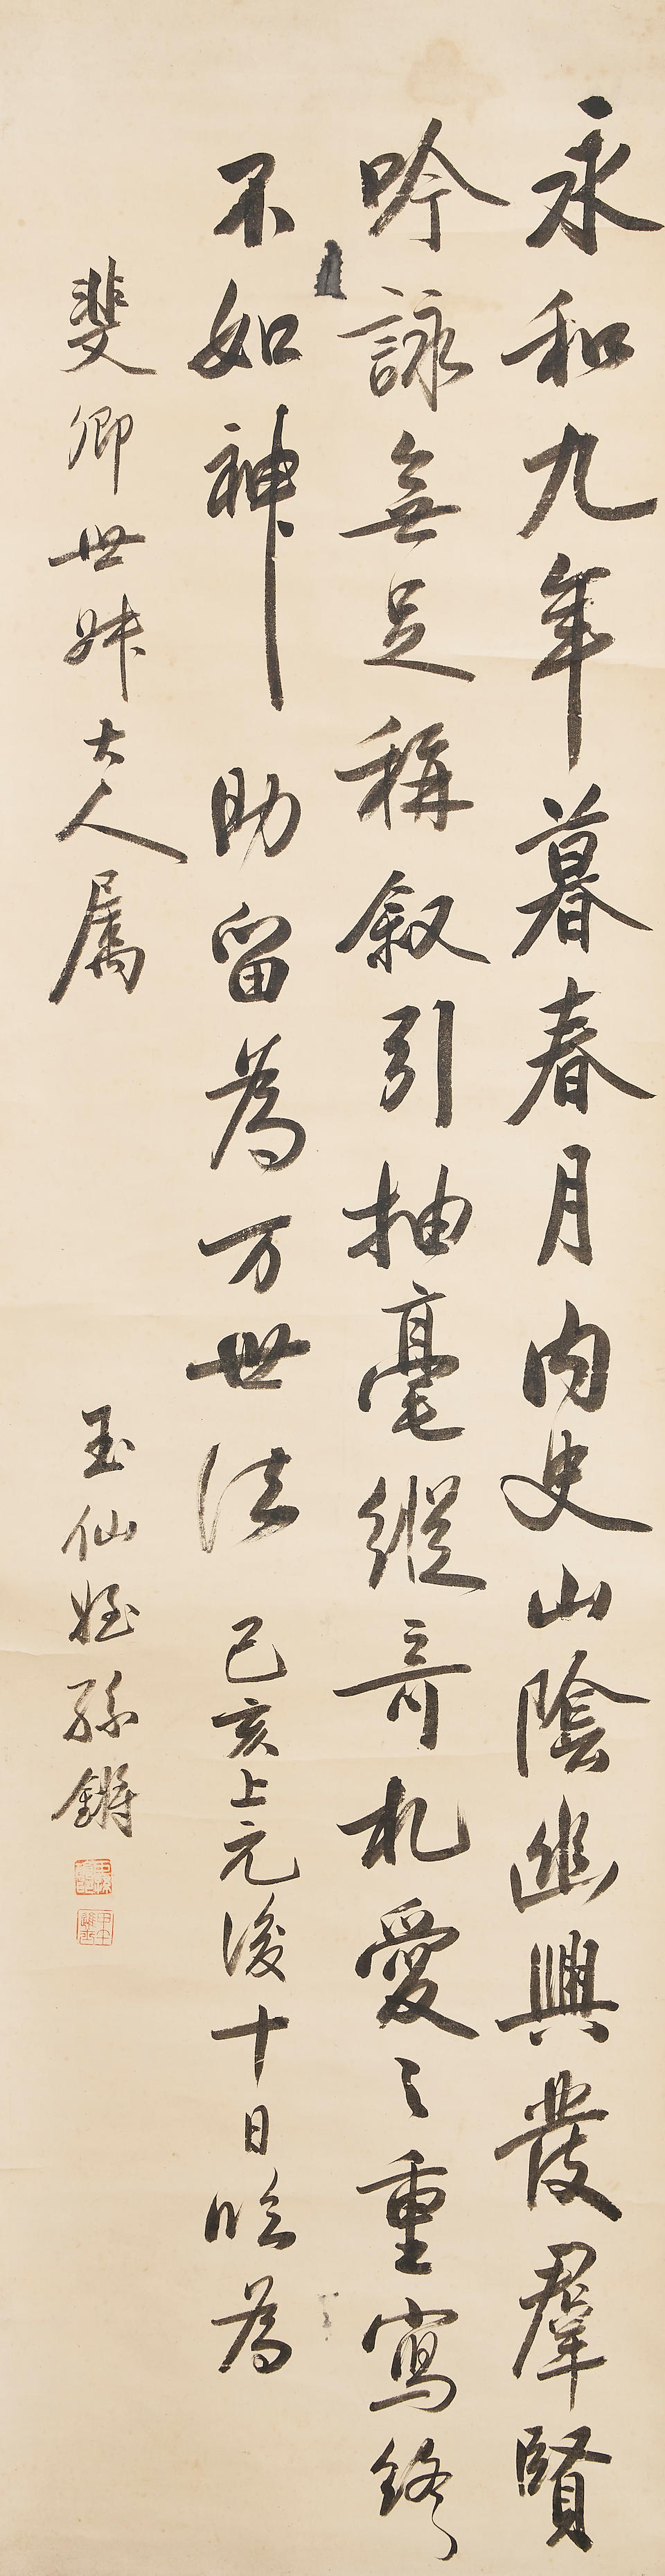 永和九年暮春月内史山陰幽興發羣賢
吟詠無足稱叙引抽毫縱奇札愛之重寫終
不如神助留為万世法 己亥上元後十日臨為
斐卿世妹大人属
玉仙姪孫鏘